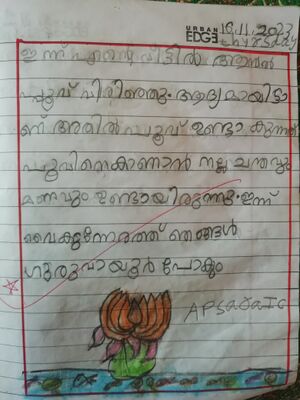 URBAN
EDGE 16.11.2023
thursday
ഇന്ന് എന്റെ വീട്ടിൽ ആമ്പൽ
പ്പൂവ് വിരിഞ്ഞു. ആദ്യമായിട്ടാ
ണ് അതിൽ പൂവ് ഉണ്ടാകുന്നത്
പൂവിനെകാണാൻ നല്ല ചന്തവും
മണവും ഉണ്ടായിരുന്നു. ഇന്ന്
വൈകുന്നേരത്ത് ഞങ്ങൾ
ഗുരുവായൂർ പോകും
APSARA